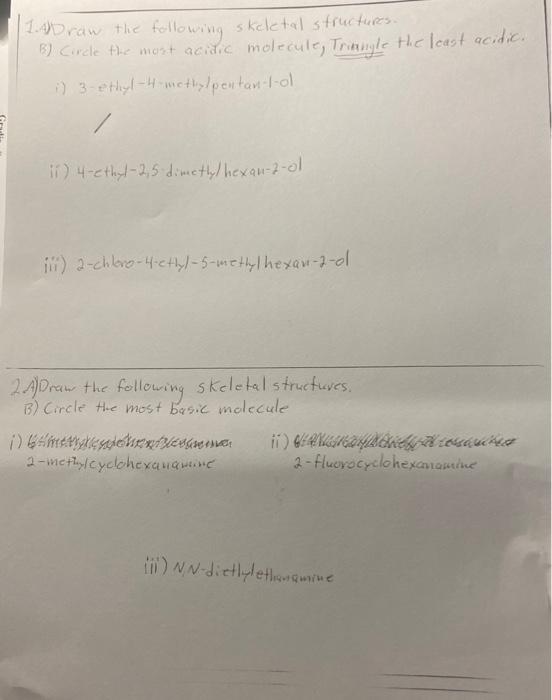 1.A) Draw the following skeletal structures.
B) Circle the most acidic molecule, Triangle the least acidic.
i) 3-ethyl-4-methylpentan-1-ol
ii) 4-ethyl-2,5-dimethylhexan-2-ol
iii) 2-chloro-4-ethyl-5-methylhexan-2-ol
2.A) Draw the following skeletal structures.
B) Circle the most basic molecule
i) ii)
2-methylcyclohexanamine 2-fluorocyclohexanamine
iii) N,N-diethylethanamine